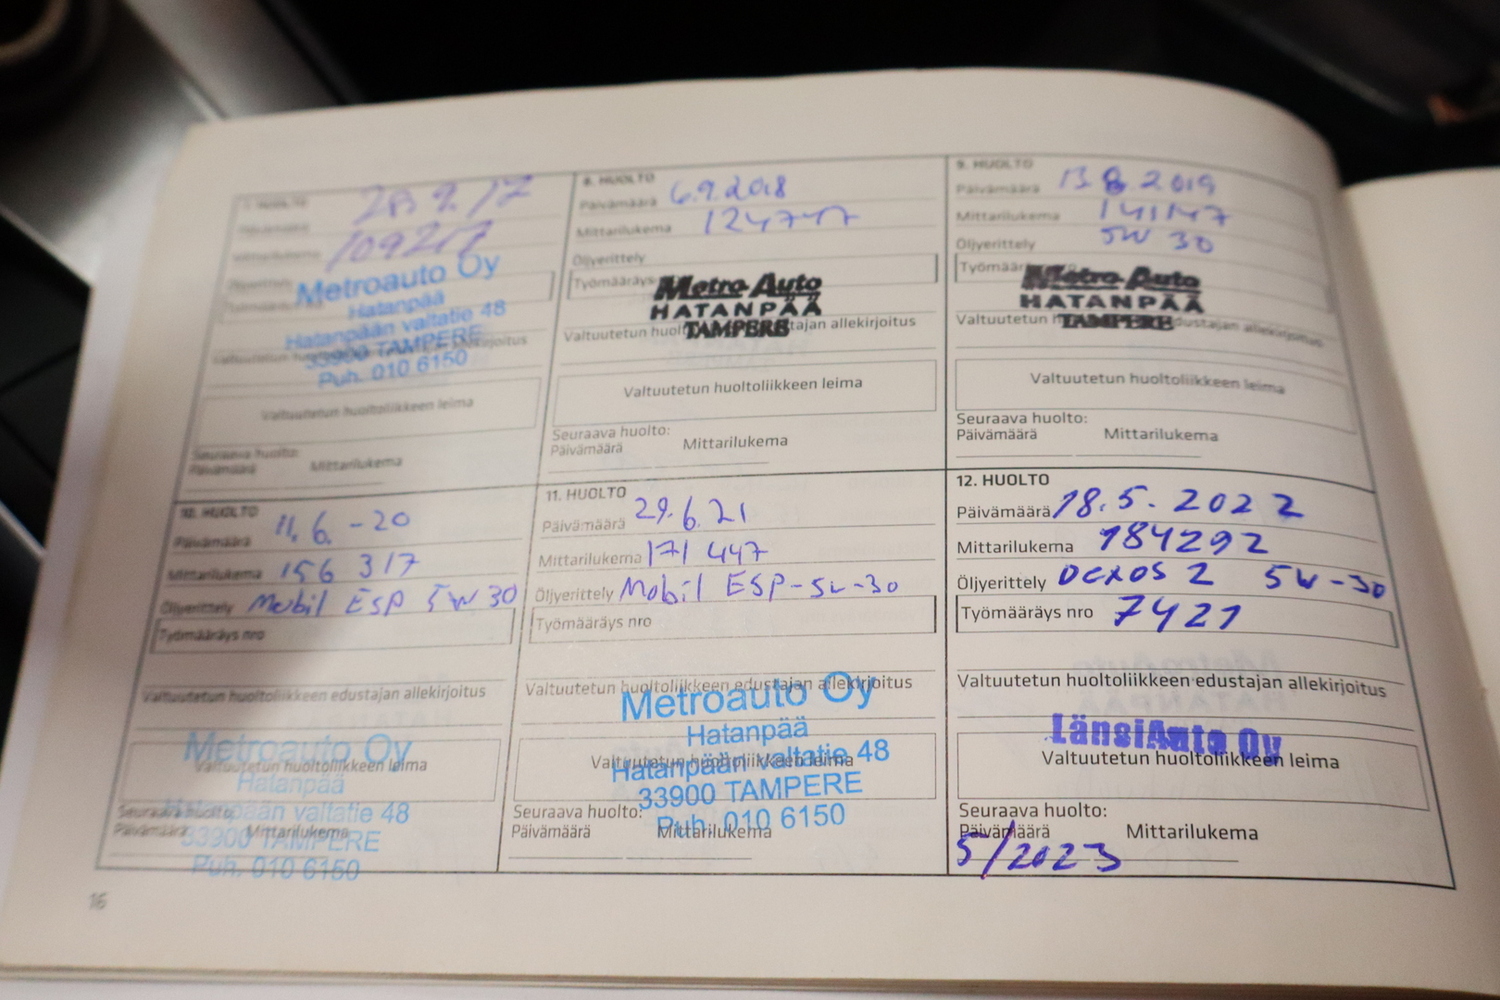 7. HUOLTO
28.9.17
Päivämäärä
Mittarilukema 109217
Öljyerittely
Metroauto Oy
Hatanpää
Hatanpään valtatie 48
33900 TAMPERE
Puh. 010 6150
Valtuutetun huoltoliikkeen leima
Seuraava huolto:
Päivämäärä Mittarilukema
8. HUOLTO
Päivämäärä 6.9.2018
Mittarilukema 124747
Öljyerittely
Työmääräys
Metro Auto
HATANPÄÄ
TAMPERE
Valtuutetun huoltoliikkeen edustajan allekirjoitus
Valtuutetun huoltoliikkeen leima
Seuraava huolto:
Päivämäärä Mittarilukema
9. HUOLTO
Päivämäärä 13.8.2019
Mittarilukema 141147
Öljyerittely 5W 30
Työmääräys nro
Metro Auto
HATANPÄÄ
TAMPERE
Valtuutetun huoltoliikkeen edustajan allekirjoitus
Valtuutetun huoltoliikkeen leima
Seuraava huolto:
Päivämäärä Mittarilukema
10. HUOLTO
Päivämäärä 11.6.-20
Mittarilukema 156 317
Öljyerittely Mobil ESP 5W30
Työmääräys nro
Valtuutetun huoltoliikkeen edustajan allekirjoitus
Metroauto Oy
Valtuutetun huoltoliikkeen leima
Hatanpää
Hatanpään valtatie 48
33900 TAMPERE
Puh. 010 6150
Seuraava huolto:
Päivämäärä Mittarilukema
11. HUOLTO
Päivämäärä 29.6.21
Mittarilukema 171 447
Öljyerittely Mobil ESP-5W-30
Työmääräys nro
Valtuutetun huoltoliikkeen edustajan allekirjoitus
Metroauto Oy
Hatanpää
Valtuutetun huoltoliikkeen leima
Hatanpään valtatie 48
33900 TAMPERE
Puh. 010 6150
Seuraava huolto:
Päivämäärä Mittarilukema
12. HUOLTO
Päivämäärä 18.5.2022
Mittarilukema 184292
Öljyerittely DEXOS 2 5W-30
Työmääräys nro 7421
Valtuutetun huoltoliikkeen edustajan allekirjoitus
LänsiAuto Oy
Valtuutetun huoltoliikkeen leima
Seuraava huolto:
Päivämäärä Mittarilukema
5/2023
16